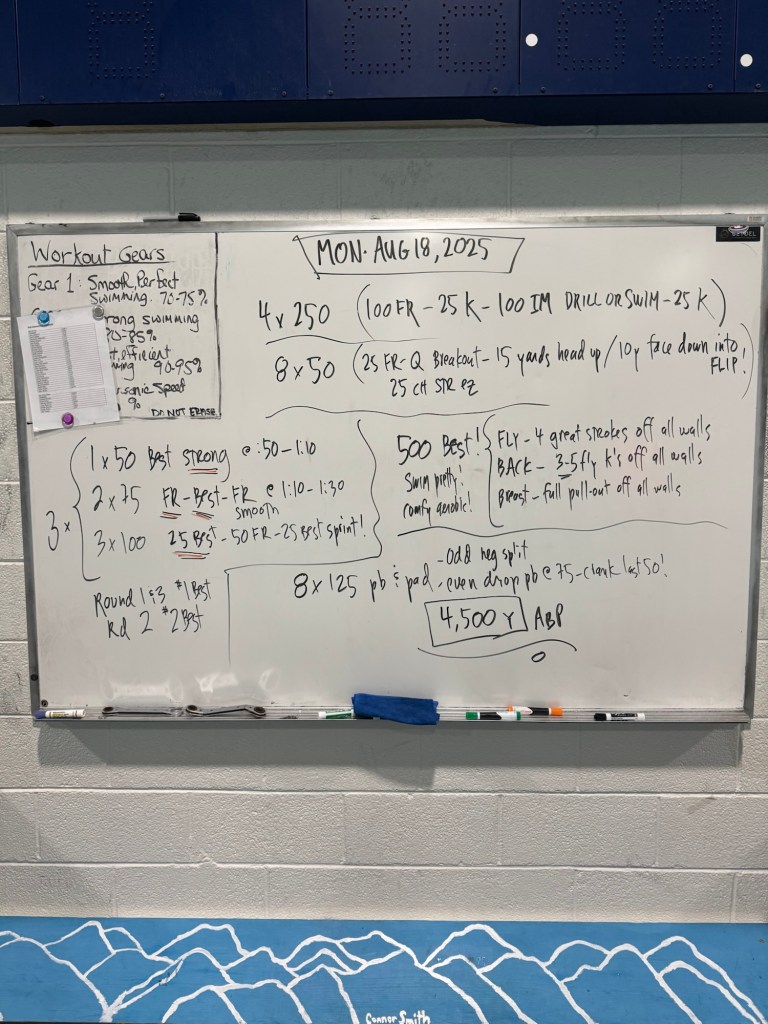 Workout Gears
Gear 1: Smooth, Perfect
Swimming. 70-75%
rong swimming
80=85%
t, efficient
ming 90-95%
rsonic Speed
%
DO NOT ERASE
MON. AUG 18, 2025
4 x 250 (100 FR - 25 K - 100 IM DRILL OR SWIM - 25 K)
8 x 50 (25 FR-Q Breakout - 15 yards head up / 10y face down into FLIP!
25 CH STR ez)
3 x
1 x 50 Best strong @ :50 - 1:10
2 x 75 FR - Best - FR @ 1:10 - 1:30
smooth
3 x 100 25 Best - 50 FR - 25 Best sprint!
Round 1 & 3 #1 Best
Rd 2 #2 Best
500 Best!
Swim pretty!
comfy aerobic!
FLY - 4 great strokes off all walls
BACK - 3-5 fly k's off all walls
Breast - full pull-out off all walls
8 x 125 pb & pad
- Odd neg split
- even drop pb @ 75 - crank last 50!
4,500 Y ABP
Connor Smith